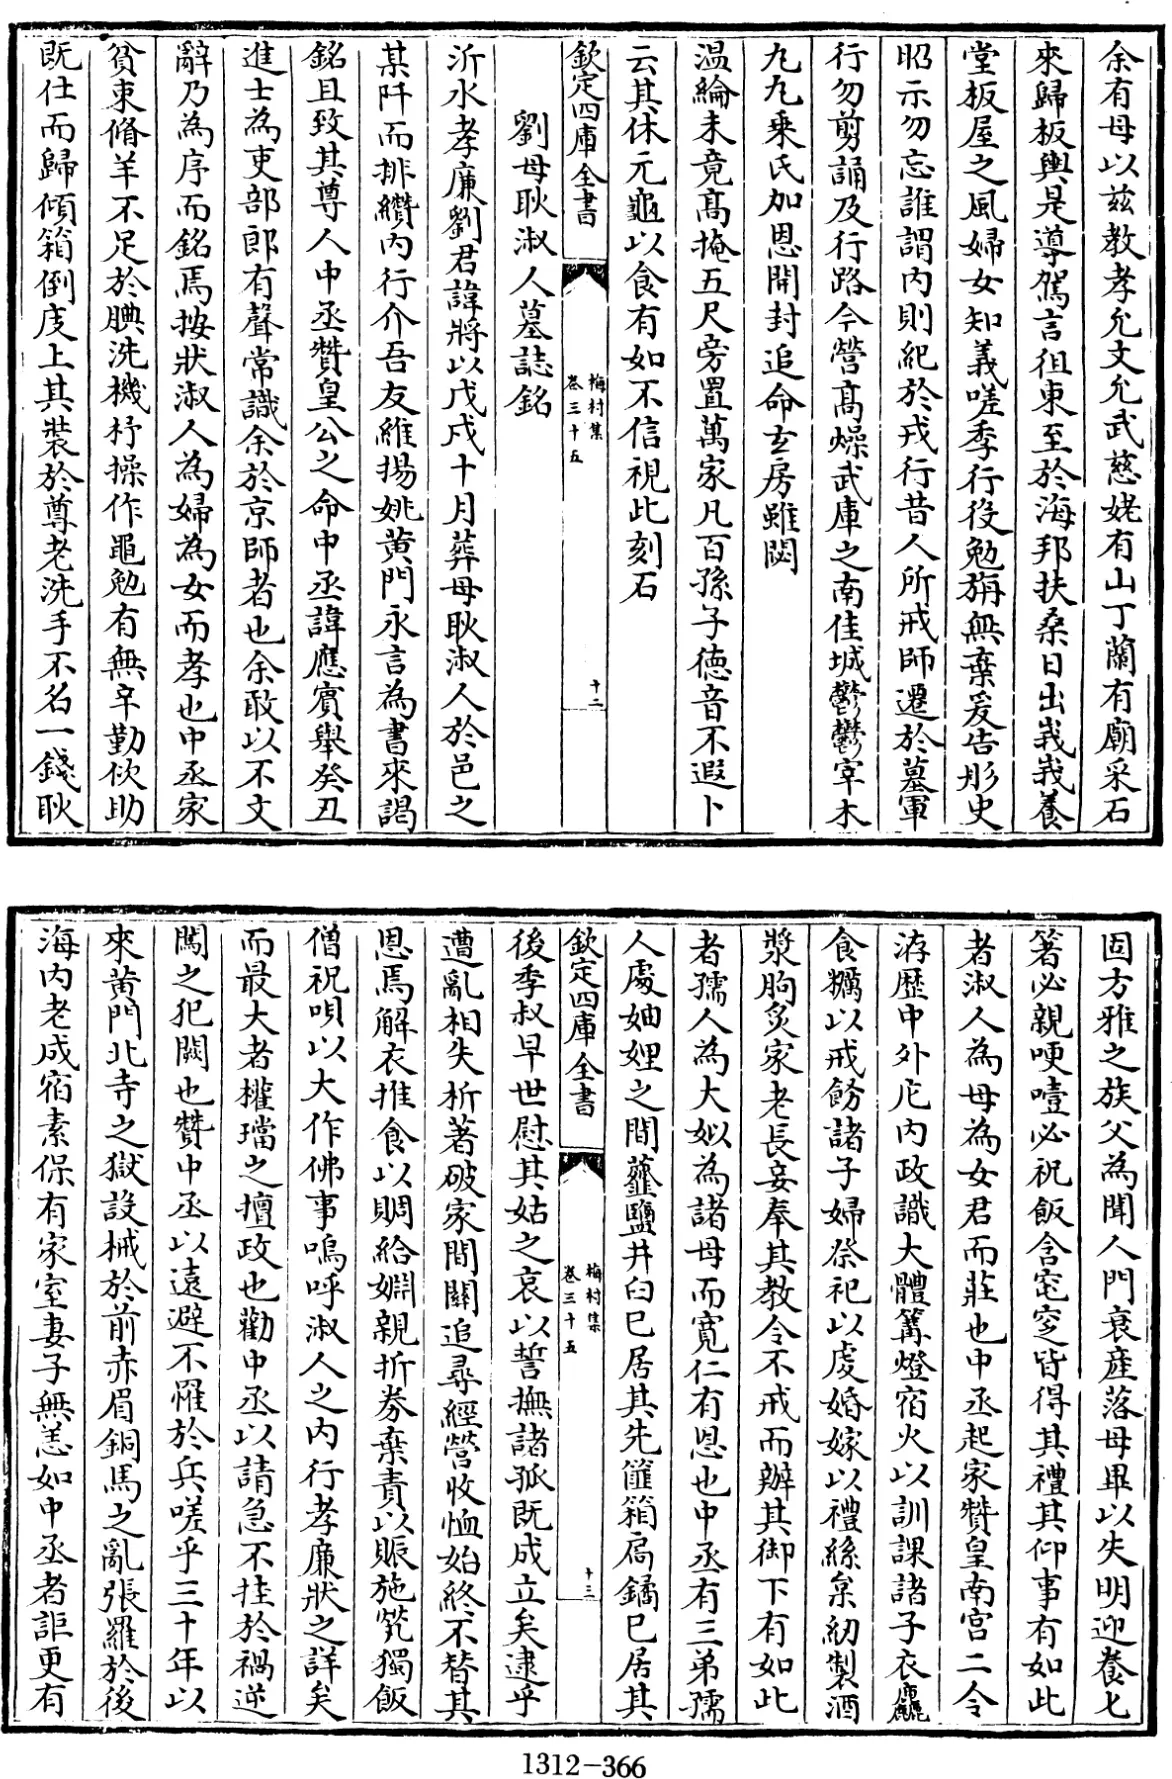 余有母以兹教孝允文允武慈姥有山丁蘭有廟采石
來歸板輿是導駕言徂東至於海邦扶桑日出峩峩養
堂板屋之風婦女知義嗟季行役勉旃無棄爰告彤史
昭示勿忘誰謂内則紀於戎行昔人所戒師遷於墓軍
行勿剪誦及行路今營髙燥武庫之南佳城鬱鬱宰木
九九乗氏加恩開封追命玄房雖閟
温綸未竟髙掩五尺旁置萬家凡百孫子徳音不遐卜
云其休元龜以食有如不信視此刻石
欽定四庫全書
梅村集
卷三十五
十二
劉母耿淑人墓誌銘
沂水孝廉劉君諱將以戊戌十月葬母耿淑人於邑之
某阡而排纘内行介吾友維揚姚黄門永言為書來謁
銘且致其尊人中丞贊皇公之命中丞諱應賓舉癸丑
進士為吏部郎有聲常識余於京師者也余敢以不文
辭乃為序而銘焉按狀淑人為婦為女而孝也中丞家
貧束脩羊不足於腆洗機杼操作黽勉有無辛勤佽助
既仕而歸傾箱倒庋上其裝於尊老洗手不名一錢耿
固方雅之族父為聞人門衰産落母畢以失明迎養七
箸必親哽噎必祝飯含窀穸皆得其禮其仰事有如此
者淑人為母為女君而莊也中丞起家贊皇南宫二令
洊歴中外凡内政識大體篝燈宿火以訓課諸子衣麤
食糲以戒飭諸子婦祭祀以虔婚嫁以禮絲枲紉製酒
漿朐炙家老長妾奉其教令不戒而辦其御下有如此
者孺人為大姒為諸母而寛仁有恩也中丞有三弟孺
人處妯娌之間虀鹽井臼已居其先篋箱扃鐍已居其
欽定四庫全書
梅村集
卷三十五
十三
後季叔早世慰其姑之哀以誓撫諸孤既成立矣逮乎
遭亂相失析著破家間關追尋經營收恤始終不替其
恩焉解衣推食以賙給婣親折劵棄責以賑施煢獨飯
僧祝唄以大作佛事嗚呼淑人之内行孝廉狀之詳矣
而最大者權璫之擅政也勸中丞以請急不挂於禍逆
闖之犯闕也贊中丞以逺避不罹於兵嗟乎三十年以
來黄門北寺之獄設械於前赤眉銅馬之亂張羅於後
海内老成宿素保有家室妻子無恙如中丞者詎更有
1312-366